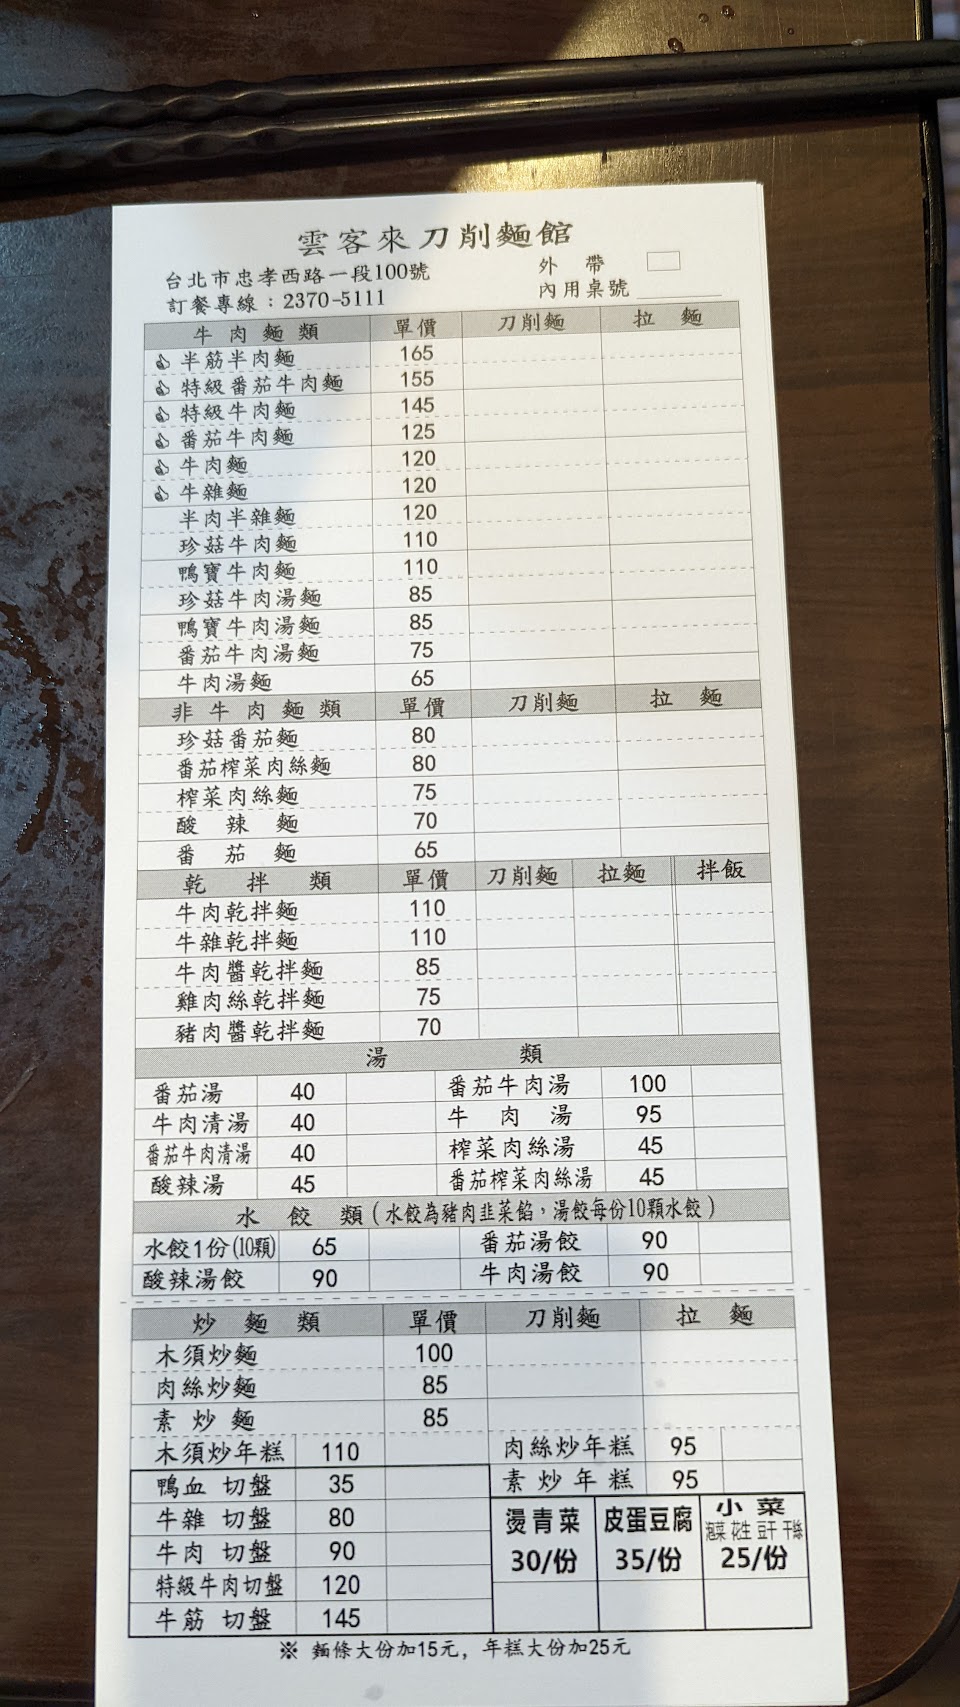 雲客來刀削麵館
台北市忠孝西路一段100號
外 帶
訂餐專線：2370-5111
內用桌號
牛肉麵類 單價 刀削麵 拉麵
半筋半肉麵 165
特級番茄牛肉麵 155
特級牛肉麵 145
番茄牛肉麵 125
牛肉麵 120
牛雜麵 120
半肉半雜麵 120
珍菇牛肉麵 110
鴨寶牛肉麵 110
珍菇牛肉湯麵 85
鴨寶牛肉湯麵 85
番茄牛肉湯麵 75
牛肉湯麵 65
非牛肉麵類 單價 刀削麵 拉麵
珍菇番茄麵 80
番茄榨菜肉絲麵 80
榨菜肉絲麵 75
酸辣麵 70
番茄麵 65
乾拌類 單價 刀削麵 拉麵 拌飯
牛肉乾拌麵 110
牛雜乾拌麵 110
牛肉醬乾拌麵 85
雞肉絲乾拌麵 75
豬肉醬乾拌麵 70
湯類
番茄湯 40 番茄牛肉湯 100
牛肉清湯 40 牛肉湯 95
番茄牛肉清湯 40 榨菜肉絲湯 45
酸辣湯 45 番茄榨菜肉絲湯 45
水餃類(水餃為豬肉韭菜餡，湯餃每份10顆水餃)
水餃1份(10顆) 65 番茄湯餃 90
酸辣湯餃 90 牛肉湯餃 90
炒麵類 單價 刀削麵 拉麵
木須炒麵 100
肉絲炒麵 85
素炒麵 85
木須炒年糕 110 肉絲炒年糕 95
鴨血 切盤 35 素炒年糕 95
牛雜 切盤 80
牛肉 切盤 90
特級牛肉切盤 120
牛筋 切盤 145
燙青菜 30/份
皮蛋豆腐 35/份
小菜
泡菜 花生 豆干 干絲
25/份
※ 麵條大份加15元，年糕大份加25元